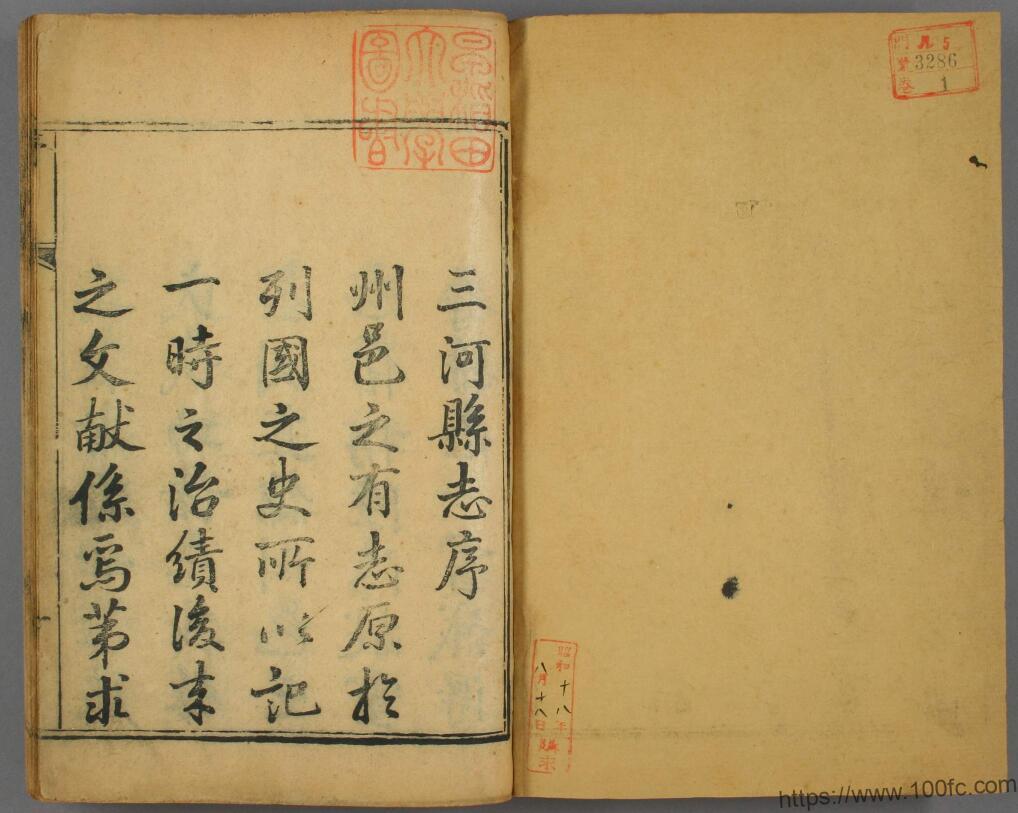 門 凡5
號 3286
卷 1
早稲田
大學
圖書
三河縣志序
州邑之有志原於
列國之史所以記
一時之治績後来
之文献係焉苐求
昭和十八年
八月十八日購求
https://www.100fc.com